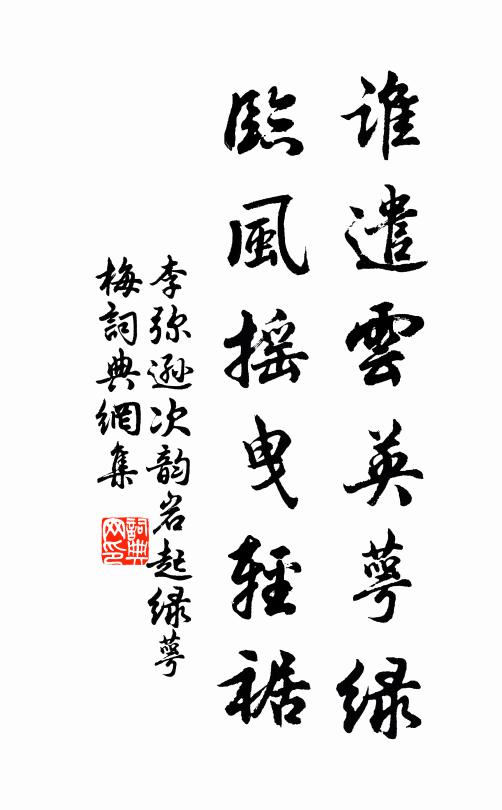 誰遣雲英萼綠
臨風搖曳輕裾
李弥遜次韵岩起緑萼
梅詞典網集
詞典网印